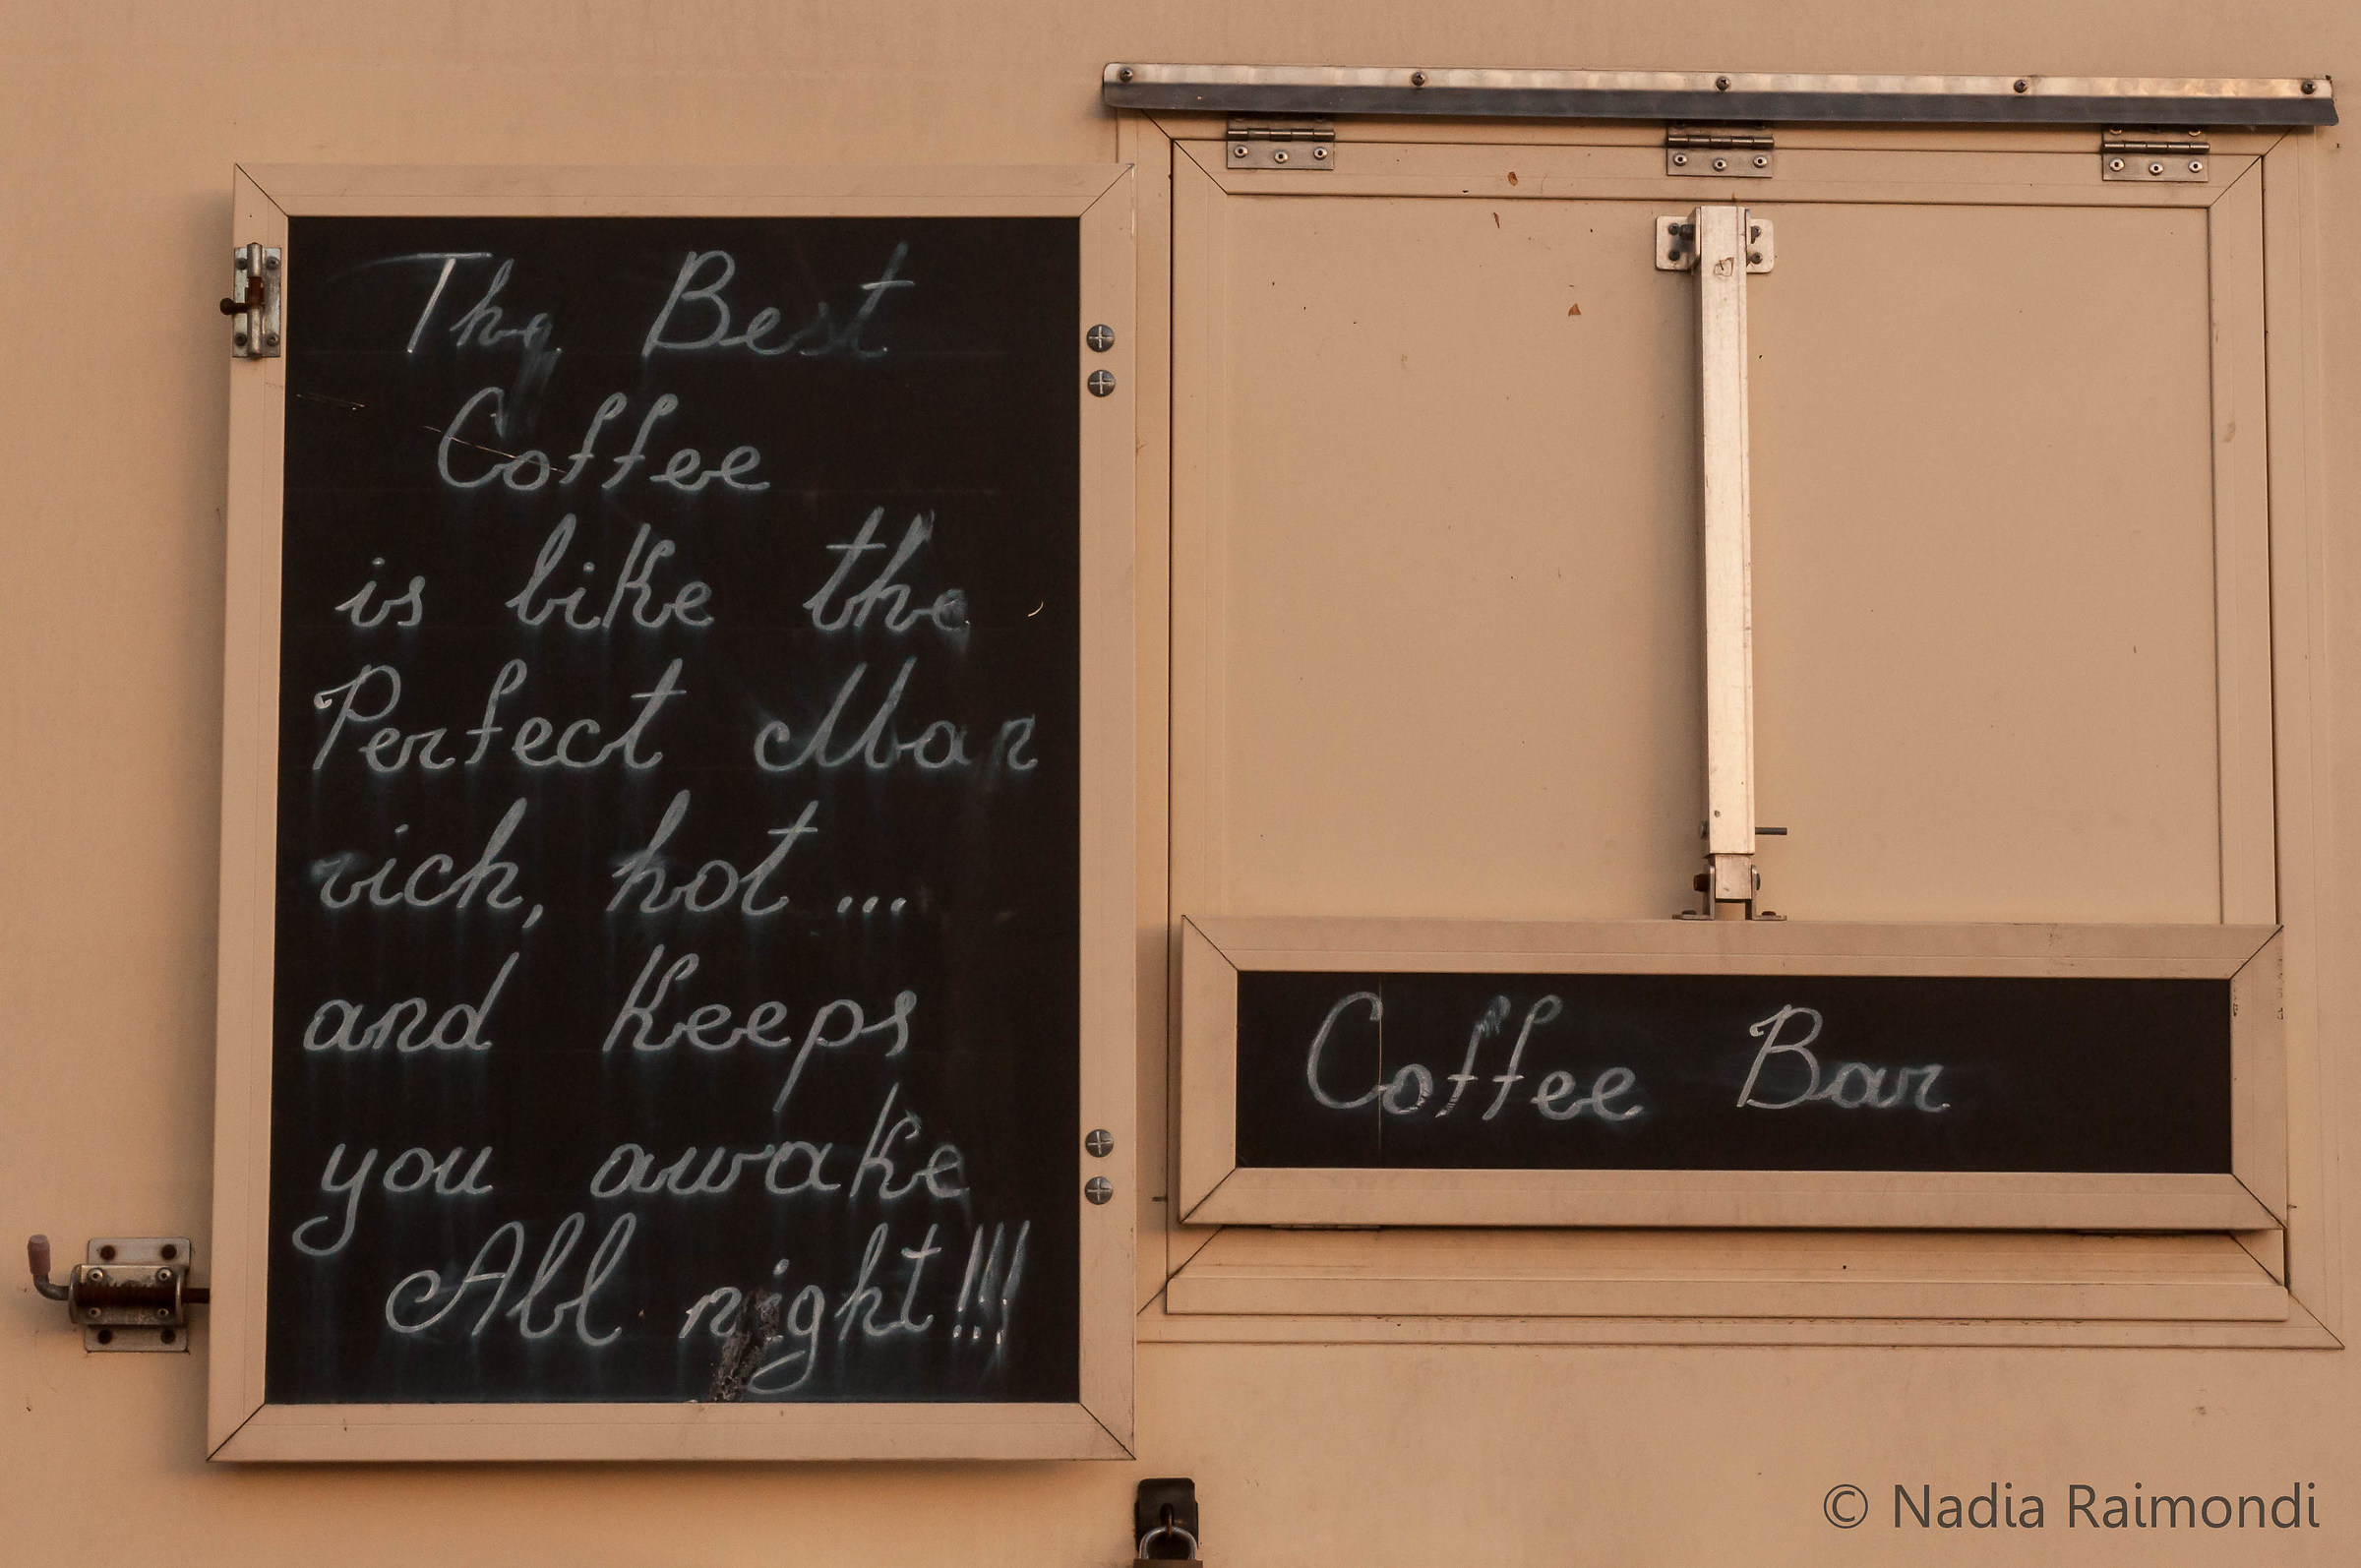 The Best
Coffee
is like the
Perfect Man
rich, hot ...
and keeps
you awake
All night!!!
Coffee Bar
© Nadia Raimondi